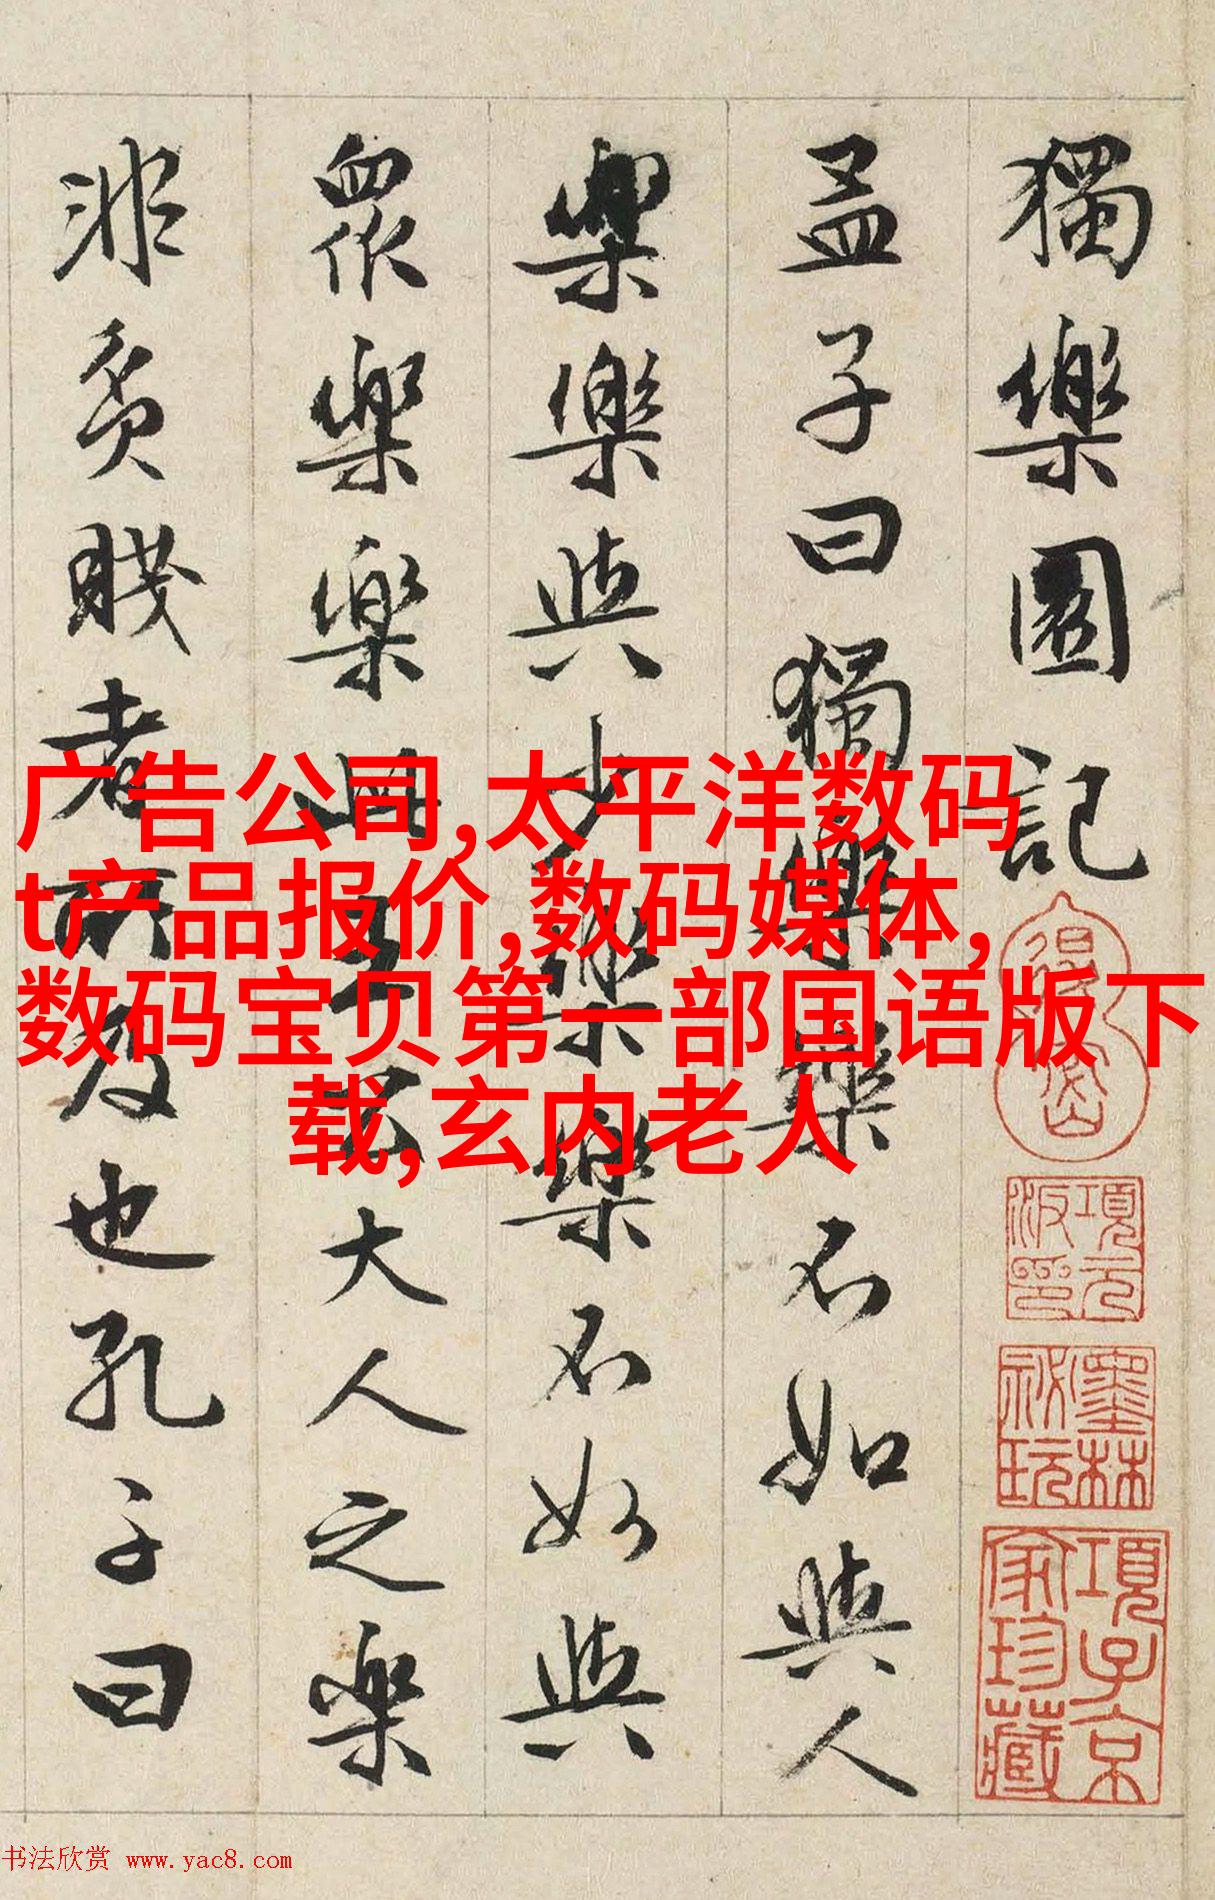 獨樂園記
孟子曰獨樂樂不如與人
樂樂與少樂樂不如與
眾樂樂此王公大人之樂
非貧賤者所及也孔子曰
广告公司,太平洋数码
t产品报价,数码媒体,
数码宝贝第一部国语版下
载,玄内老人
項元汴印
墨林祕玩
項子京家珍藏
书法欣赏 www.yac8.com